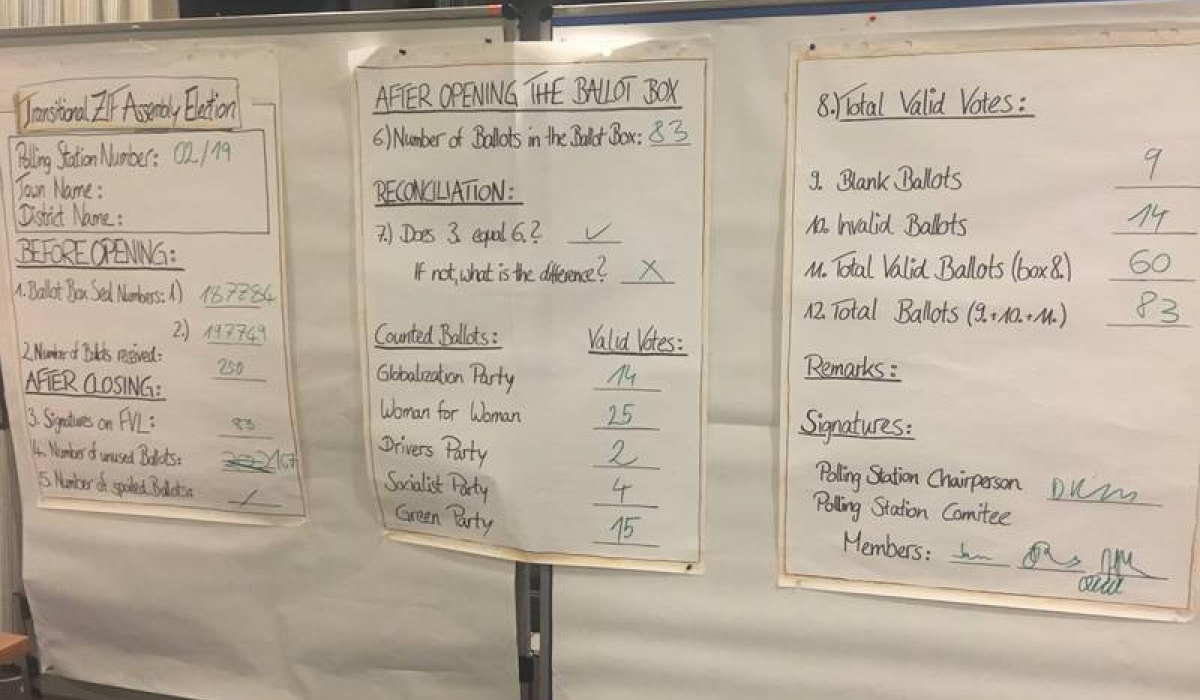 Transitional ZIF Assembly Election
Polling Station Number: 02/19
Town Name:
District Name:
BEFORE OPENING:
1. Ballot Box Seal Numbers: 1) 187784
2.) 197749
2. Number of Ballots received: 250
AFTER CLOSING:
3. Signatures on FVL: 83
4. Number of unused Ballots: 167
5. Number of spoiled Ballots: /
AFTER OPENING THE BALLOT BOX
6.) Number of Ballots in the Ballot Box: 83
RECONCILIATION:
7.) Does 3. equal 6.? ✓
If not, what is the difference? X
Counted Ballots: Valid Votes:
Globalization Party 14
Woman for Woman 25
Drivers Party 2
Socialist Party 4
Green Party 15
8.) Total Valid Votes:
9. Blank Ballots 9
10. Invalid Ballots 14
11. Total Valid Ballots (box 8.) 60
12. Total Ballots (9.+10.+11.) 83
Remarks:
Signatures:
Polling Station Chairperson
Polling Station Comitee
Members: